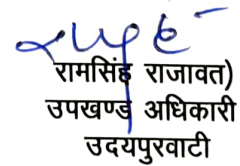 रामसिंह राजावत)
उपखण्ड अधिकारी
उदयपुरवाटी